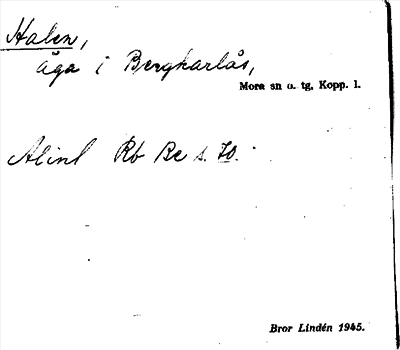 Halen,
äga i Bergkarlås,
Mora sn o. tg, Kopp. l.
Alinl Rb Be s. 10.
Bror Lindén 1945.